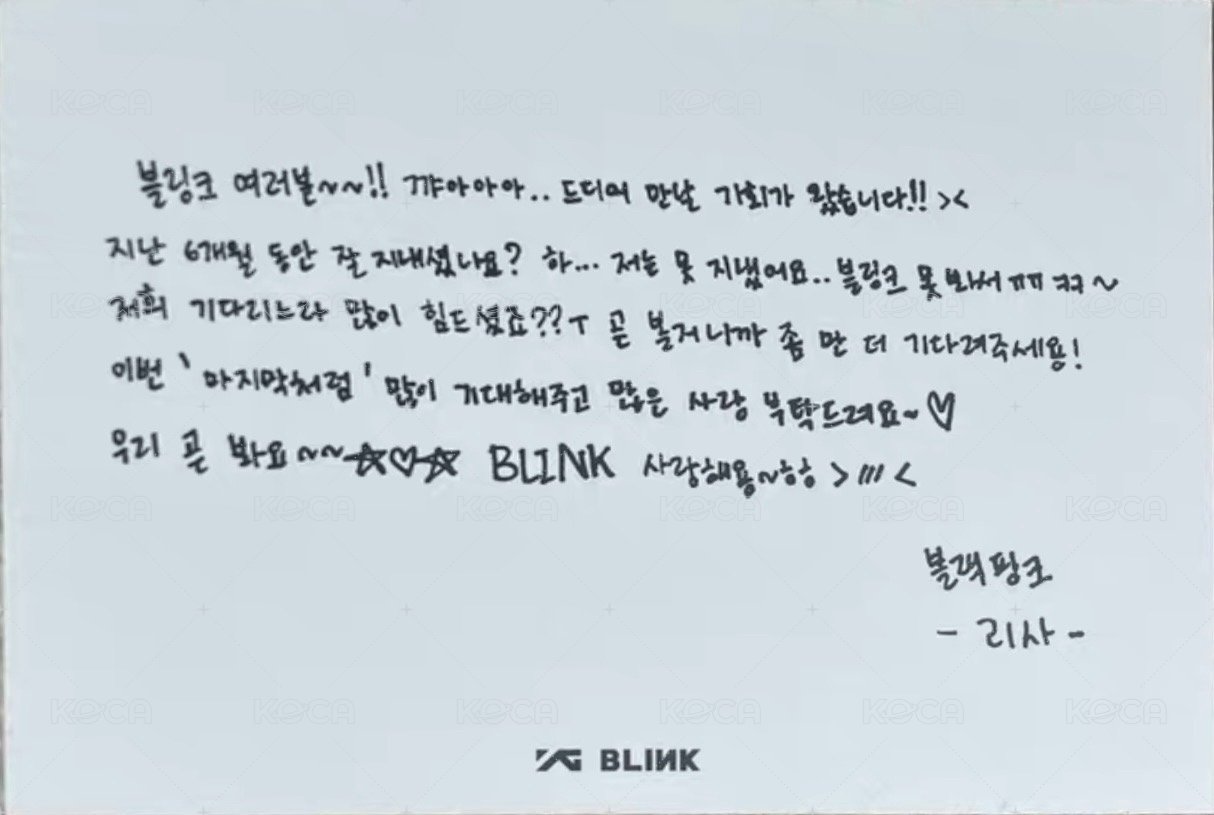 블링크 여러분~~!! 꺄아아아.. 드디여 만날 기회가 왔습니다!! ><
지난 6개월 동안 잘 지내셨나요? 하... 저는 못 지냈어요.. 블링크 못 봐서 ㅠㅠ ㅋㅋ~
저희 기다리느라 많이 힘드셨죠??ㅜ 곧 볼거니까 좀 만 더 기다려주세용!
이번 '마지막처럼' 많이 기대해주고 많은 사랑 부탁드려요~♡
우리 곧 봐요~~☆♡☆ BLINK 사랑해용~ㅎㅎ >///<
블랙핑크
- 리사 -
YG BLINK
KOCA